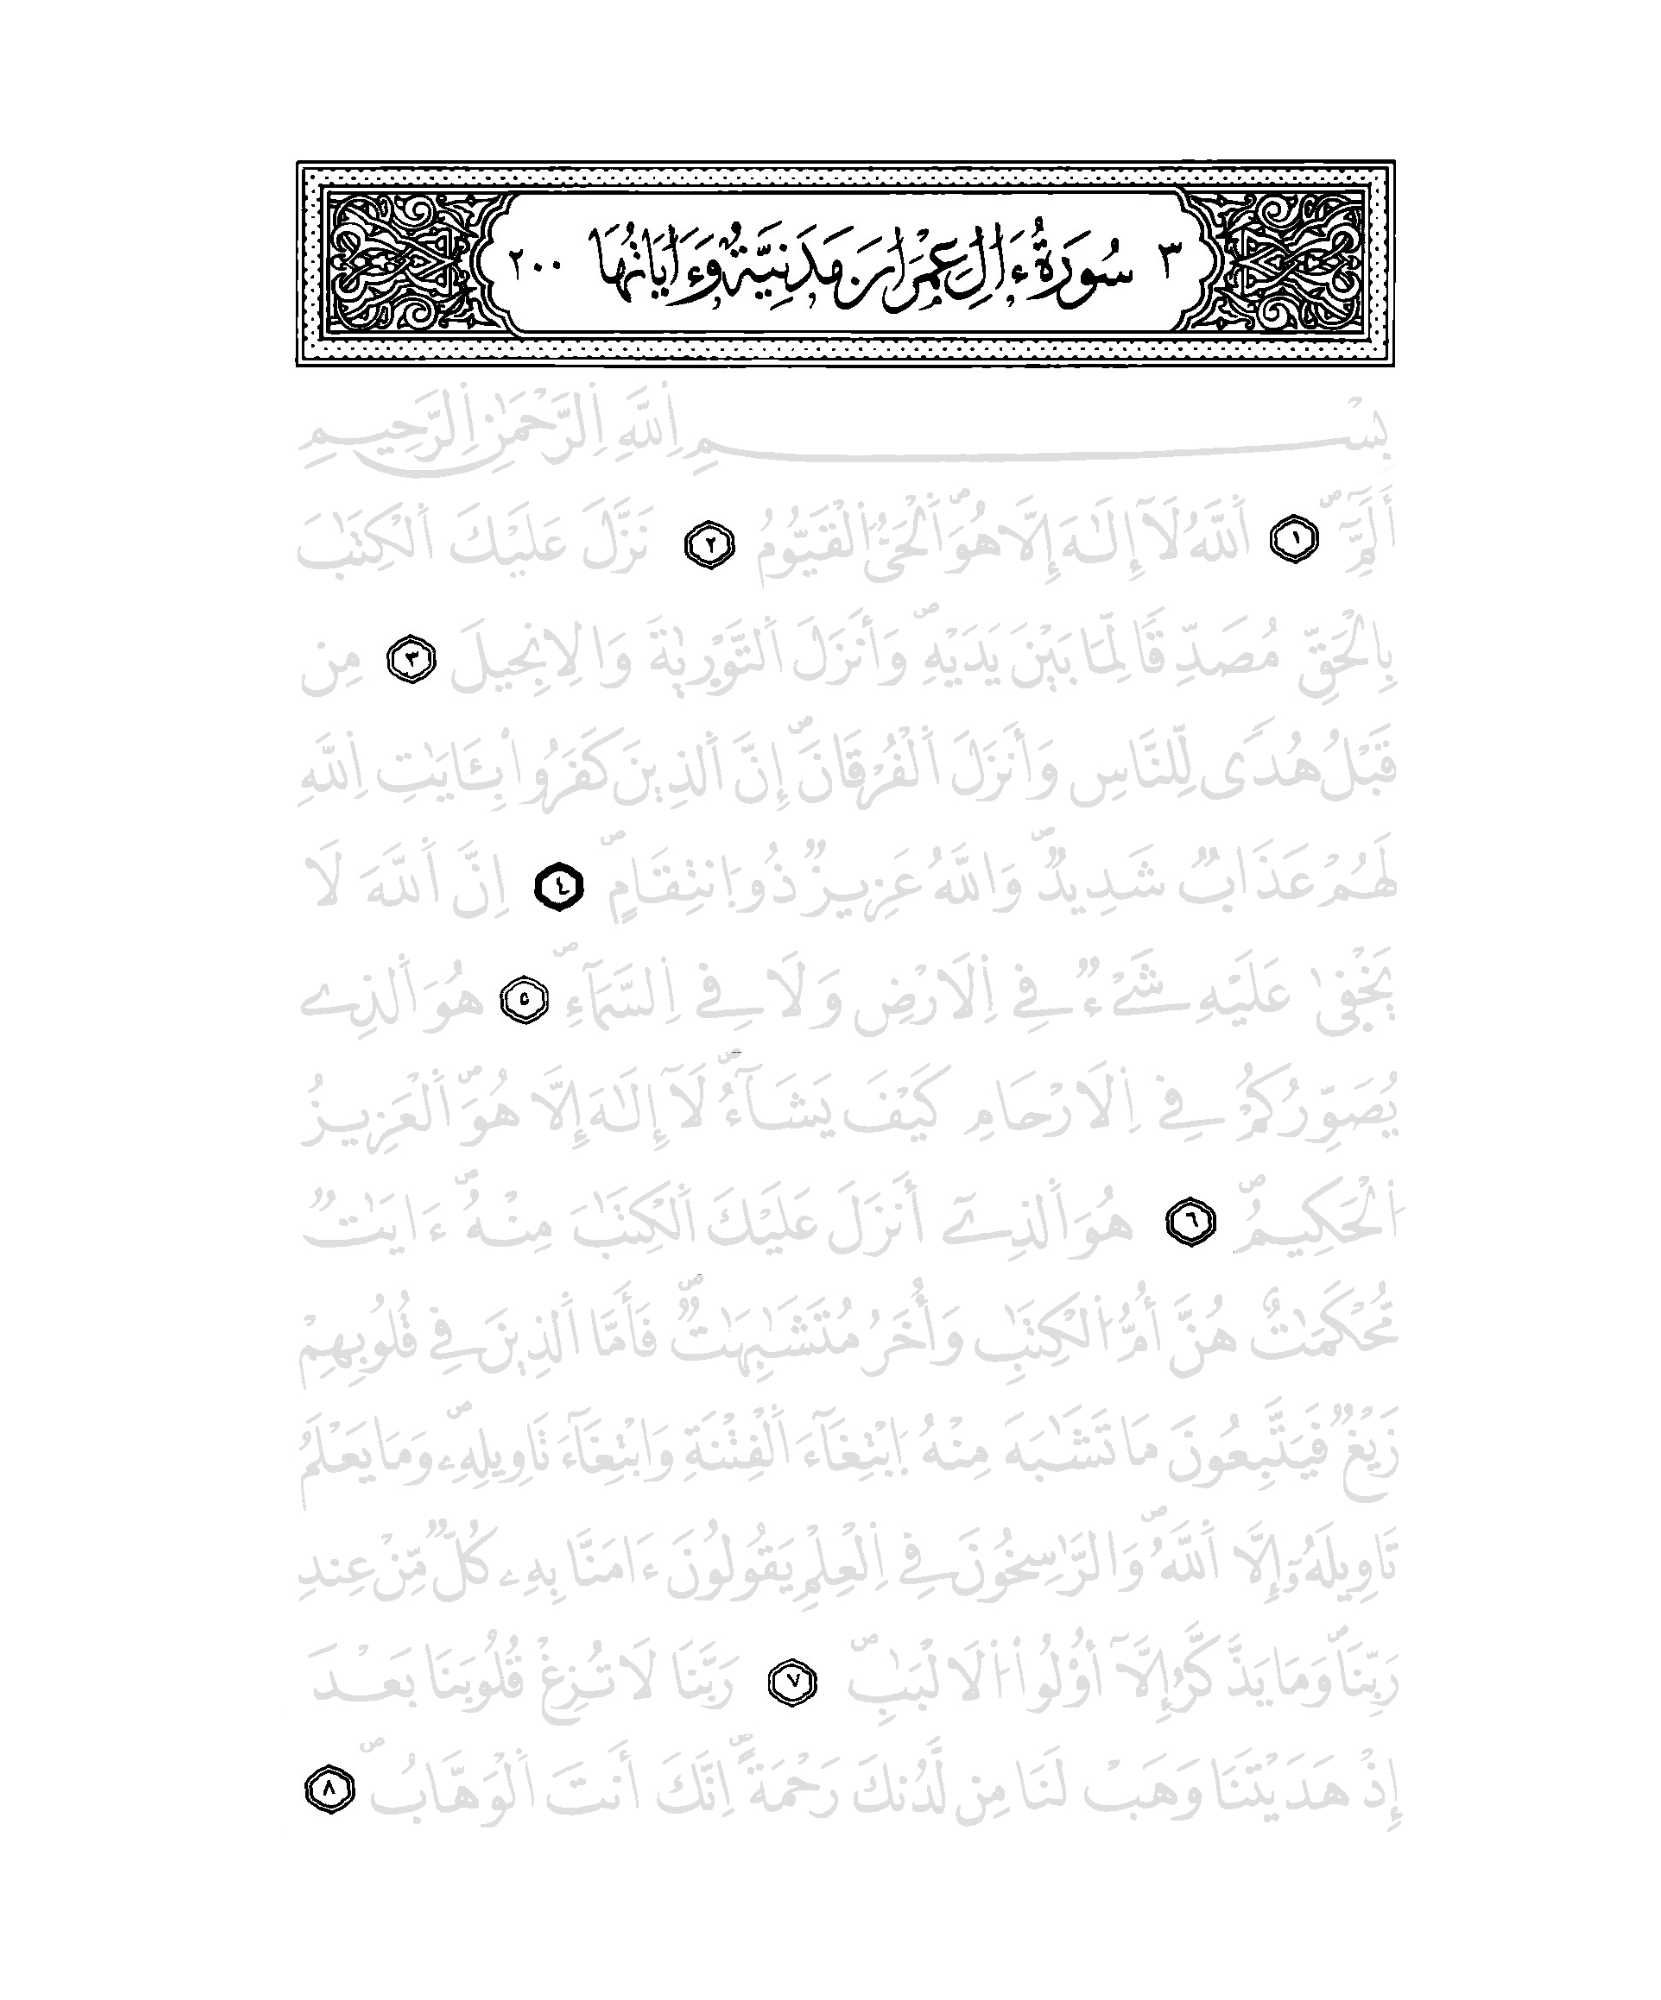 ٣ سُورَةُ ءَالِ عِمْرَانَ مَدَنِيَّةٌ وَءَايَاتُهَا ٢٠٠
بِسْمِ اِللَّهِ اِلرَّحْمَٰنِ اِلرَّحِيمِ
أَلَٓمِّٓۖ ١ اَللَّهُ لَآ إِلَٰهَ إِلَّا هُوَۖ اَلْحَيُّ اَلْقَيُّومُ ٢ نَزَّلَ عَلَيْكَ اَلْكِتَٰبَ
بِالْحَقِّ مُصَدِّقًا لِّمَا بَيْنَ يَدَيْهِۖ وَأَنزَلَ اَلتَّوْر۪يٰةَ وَالِانجِيلَ ٣ مِن
قَبْلُ هُدًى لِّلنَّاسِ وَأَنزَلَ اَلْفُرْقَانَۖ إِنَّ اَلذِينَ كَفَرُوا بِـَٔايَٰتِ اِللَّهِ
لَهُمْ عَذَابٌ شَدِيدٌۖ وَاللَّهُ عَزِيزٌ ذُو اُ۪نتِقَامٍۖ ٤ اِنَّ اَللَّهَ لَا
يَخْف۪ىٰ عَلَيْهِ شَےْءٌ فِے اِلَارْضِ وَلَا فِے اِلسَّمَآءِۖ ٥ هُوَ اَلذِے
يُصَوِّرُكُمْ فِے اِلَارْحَامِ كَيْفَ يَشَآءُۖ لَآ إِلَٰهَ إِلَّا هُوَۖ اَلْعَزِيزُ
اُلْحَكِيمُۖ ٦ هُوَ اَلذِےٓ أَنزَلَ عَلَيْكَ اَلْكِتَٰبَ مِنْهُۖ ءَايَٰتٌ
مُّحْكَمَٰتٌ هُنَّ أُمُّ اُلْكِتَٰبِ وَأُخَرُ مُتَشَٰبِهَٰتٌۖ فَأَمَّا اَلذِينَ فِے قُلُوبِهِمْ
زَيْغٌ فَيَتَّبِعُونَ مَا تَشَٰبَهَ مِنْهُ اُ۪بْتِغَآءَ اَلْفِتْنَةِ وَابْتِغَآءَ تَاوِيلِهِۦۖ وَمَا يَعْلَمُ
تَاوِيلَهُۥٓ إِلَّا اَللَّهُۖ وَالرَّٰسِخُونَ فِے اِلْعِلْمِ يَقُولُونَ ءَامَنَّا بِهِۦ كُلٌّ مِّنْ عِندِ
رَبِّنَاۖ وَمَا يَذَّكَّرُ إِلَّآ أُوْلُوا اُ۬لَالْبَٰبِۖ ٧ رَبَّنَا لَا تُزِغْ قُلُوبَنَا بَعْدَ
إِذْ هَدَيْتَنَا وَهَبْ لَنَا مِن لَّدُنكَ رَحْمَةًۖ اِنَّكَ أَنتَ اَلْوَهَّابُۖ ٨